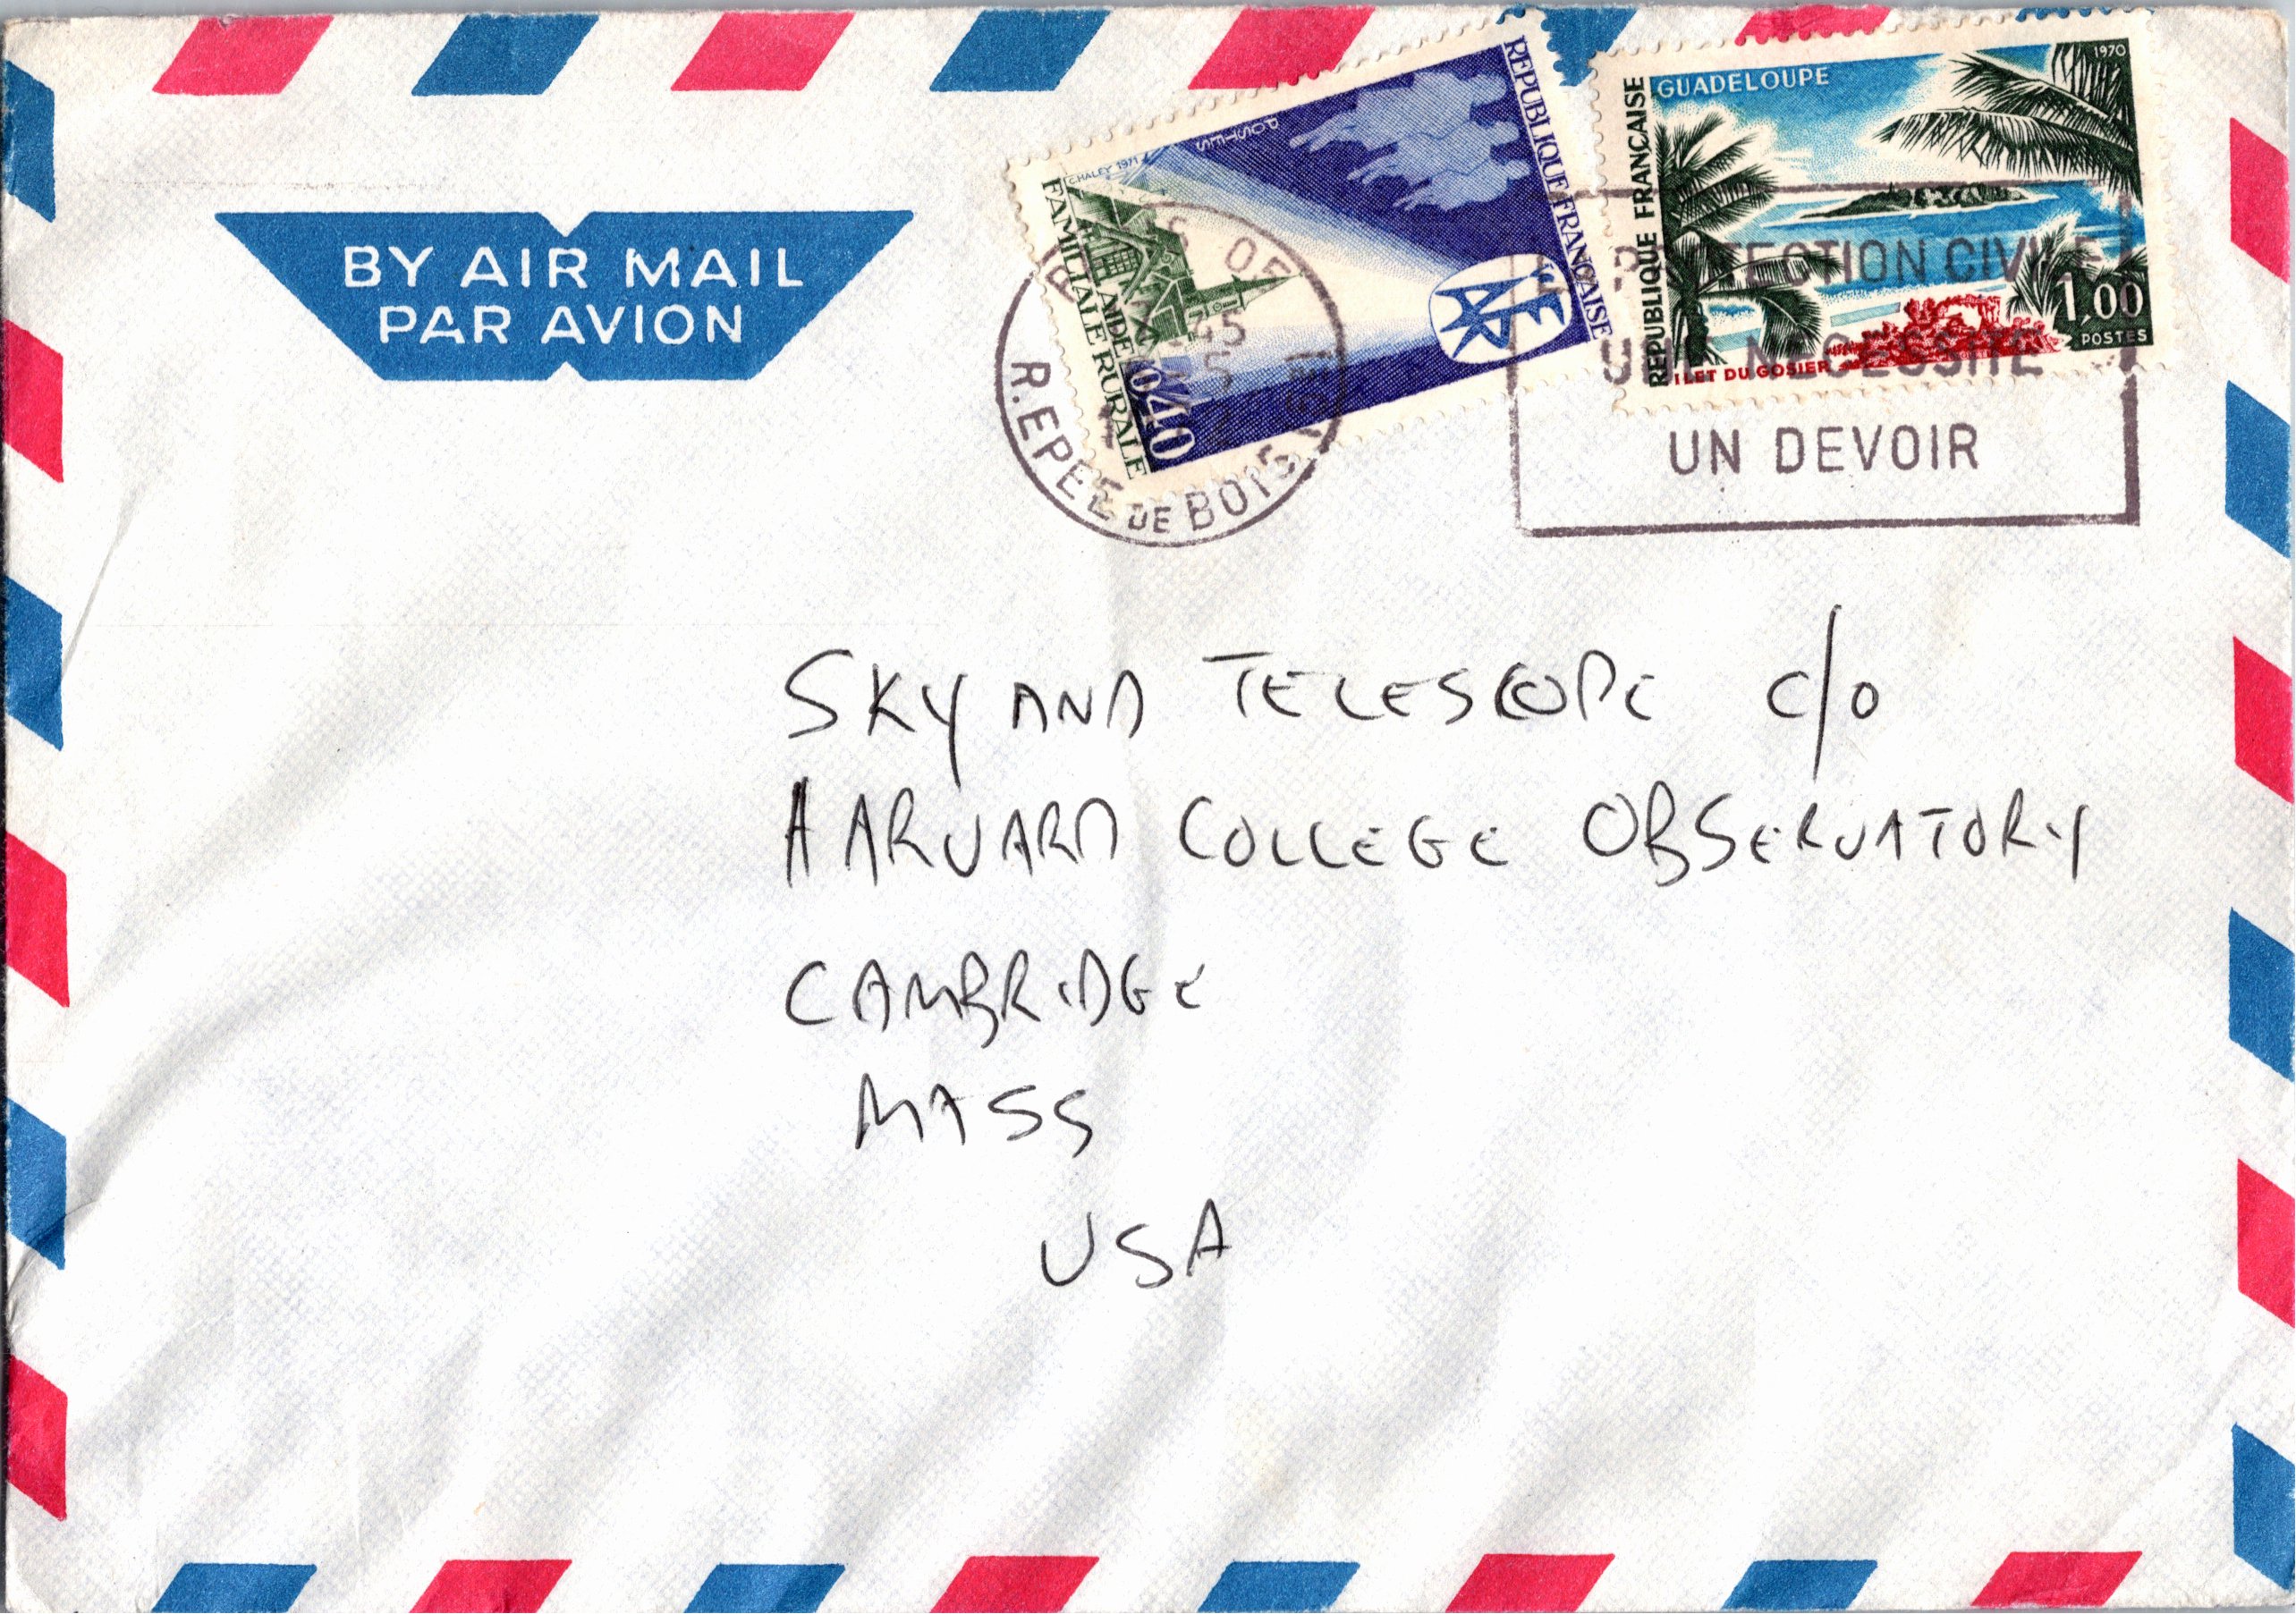 BY AIR MAIL
PAR AVION
REPUBLIQUE FRANÇAISE
POSTES
CHALEY 1971
AIDE
FAMILIALE RURALE
0,40
GUADELOUPE
1970
REPUBLIQUE FRANCAISE
1,00
POSTES
ILET DU GOSIER
05
45
5
R. EPEE DE BOIS (5E)
PROTECTION CIVILE
UNE NECESSITE
UN DEVOIR
SKY AND TELESCOPE c/o
HARVARD COLLEGE OBSERVATORY
CAMBRIDGE
MASS
USA